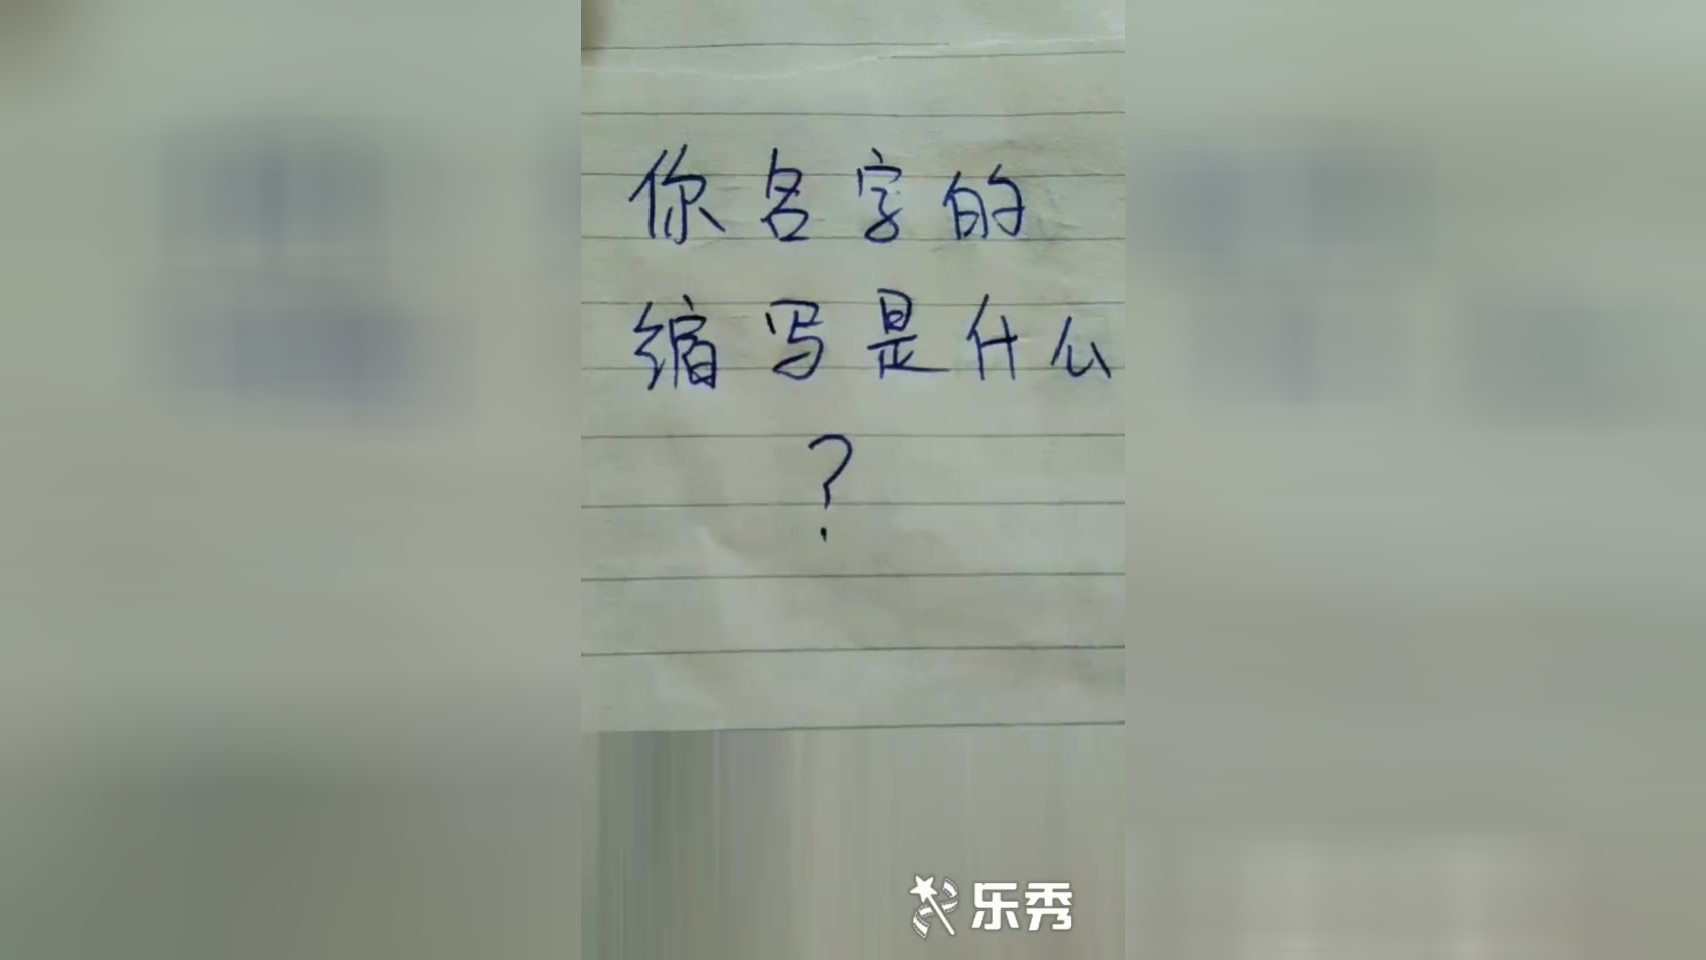 你名字的
缩写是什么
?
乐秀